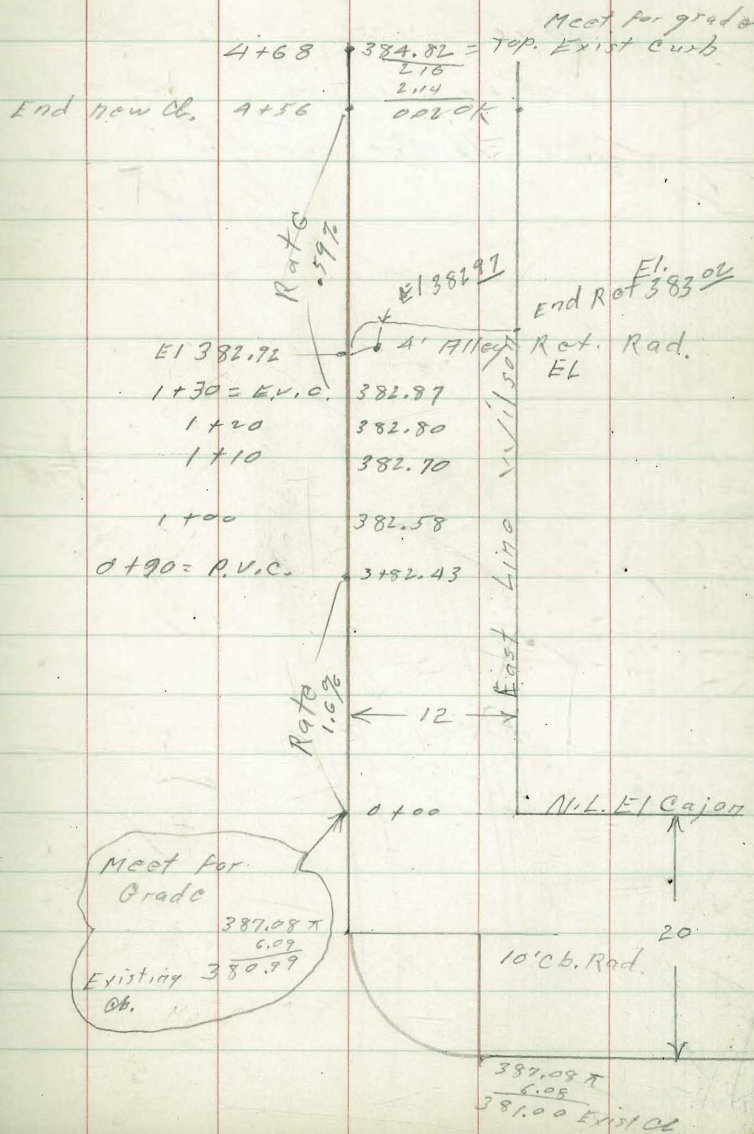 Meet for grade
4+68 384.82 = Top. Exist Curb
2.16
2.14
0.02 OK
End new Cb. 4+56
Rate
.59%
El 382.97
El.
End Ret 383.02
El 382.92
4' Alley Ret. Rad.
EL
1+30 = E.V.C. 382.87
1+20 382.80
1+10 382.70
1+00 382.58
0+90 = P.V.C. 3+82.43
East Line Wilson
Rate
1.6%
12
0+00
N.L. El Cajon
Meet for
Grade
387.08 π
6.09
Existing 380.99
Cb.
20
10' Cb. Rad.
387.08 π
6.08
381.00 Exist Cb